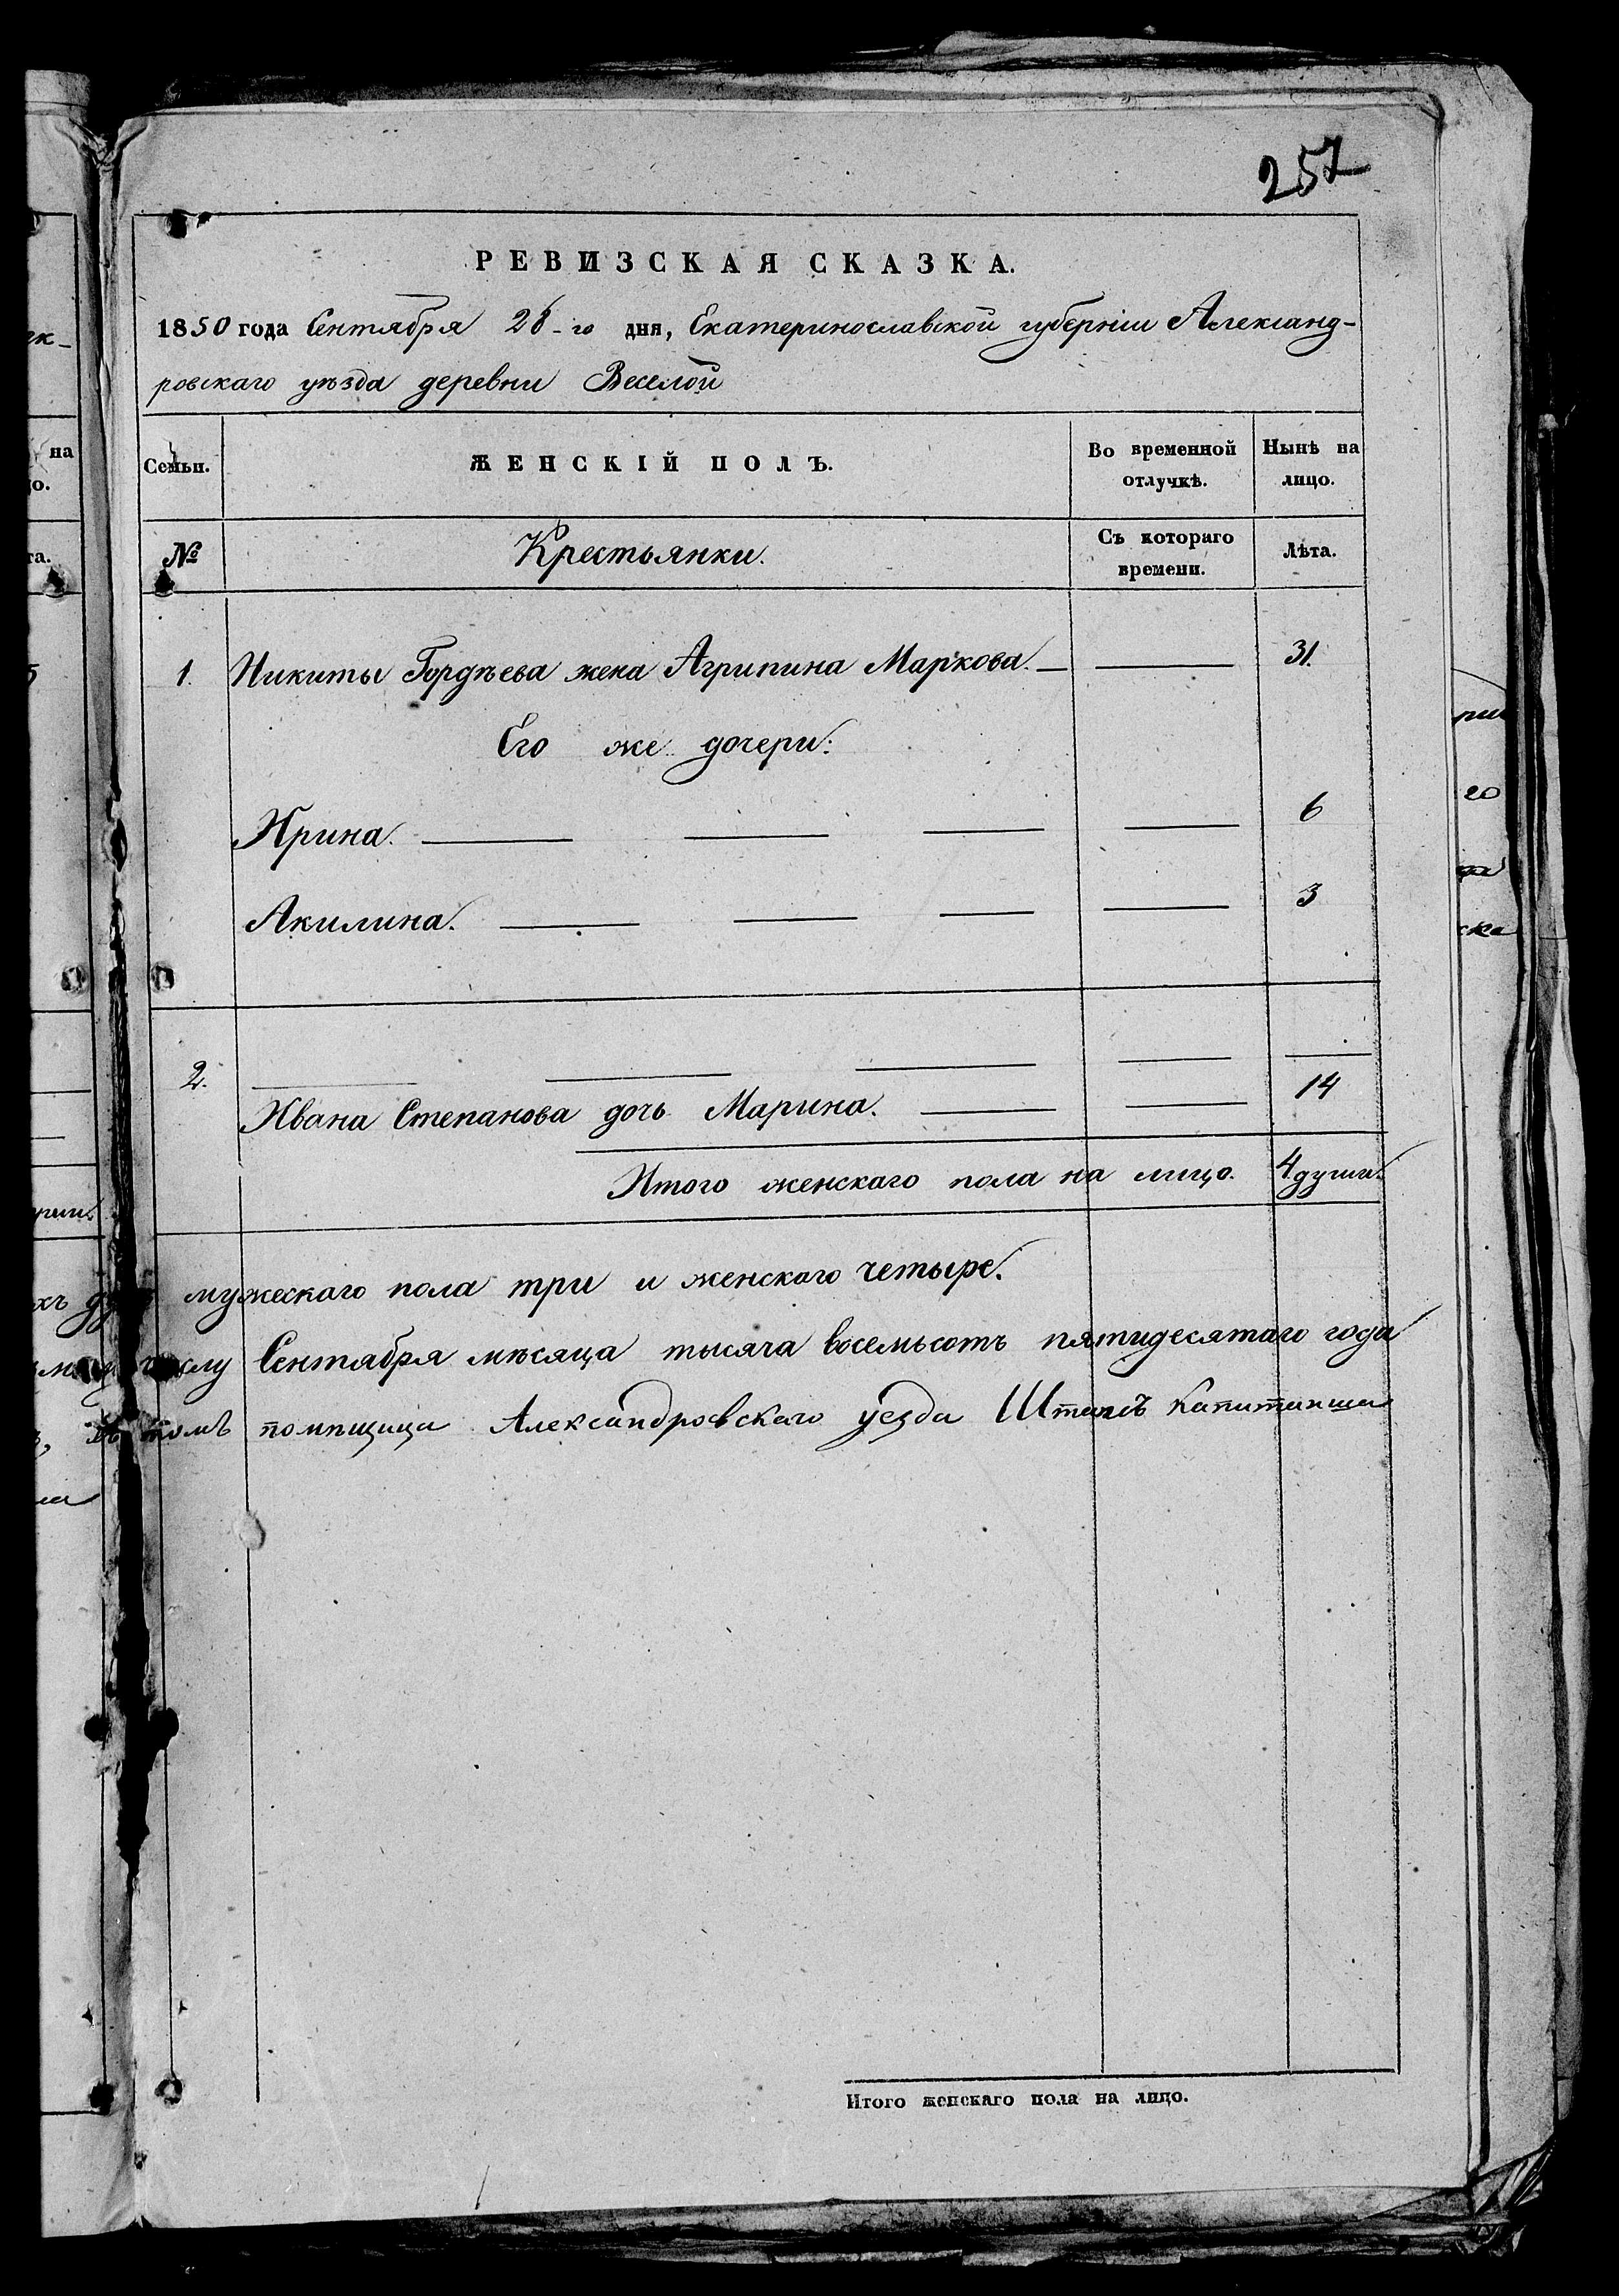 257
РЕВИЗСКАЯ СКАЗКА.
1850 года Сентября 28-го дня, Екатеринославской губерніи Александ-
ровскаго уѣзда деревни Веселой
Семьи.
ЖЕНСКІЙ ПОЛЪ.
Во временной отлучкѣ.
Нынѣ на лицо.
№
Крестьянки.
Съ котораго времени.
Лѣта.
1. Никиты Гордѣева жена Агрипина Маркова. — — 31.
Его же дочери:
Ирина. — — — — 6
Акилина. — — — — 3
2. — — — — —
Ивана Степанова дочь Марина. — — 14
Итого женскаго пола на лицо. 4 души.
мужескаго пола три и женскаго четыре.
числу Сентября мѣсяца тысяча восемьсотъ пятидесятаго года
томъ помѣщица Александровскаго уезда Штапсъ Капитанша
Итого женскаго пола на лицо.